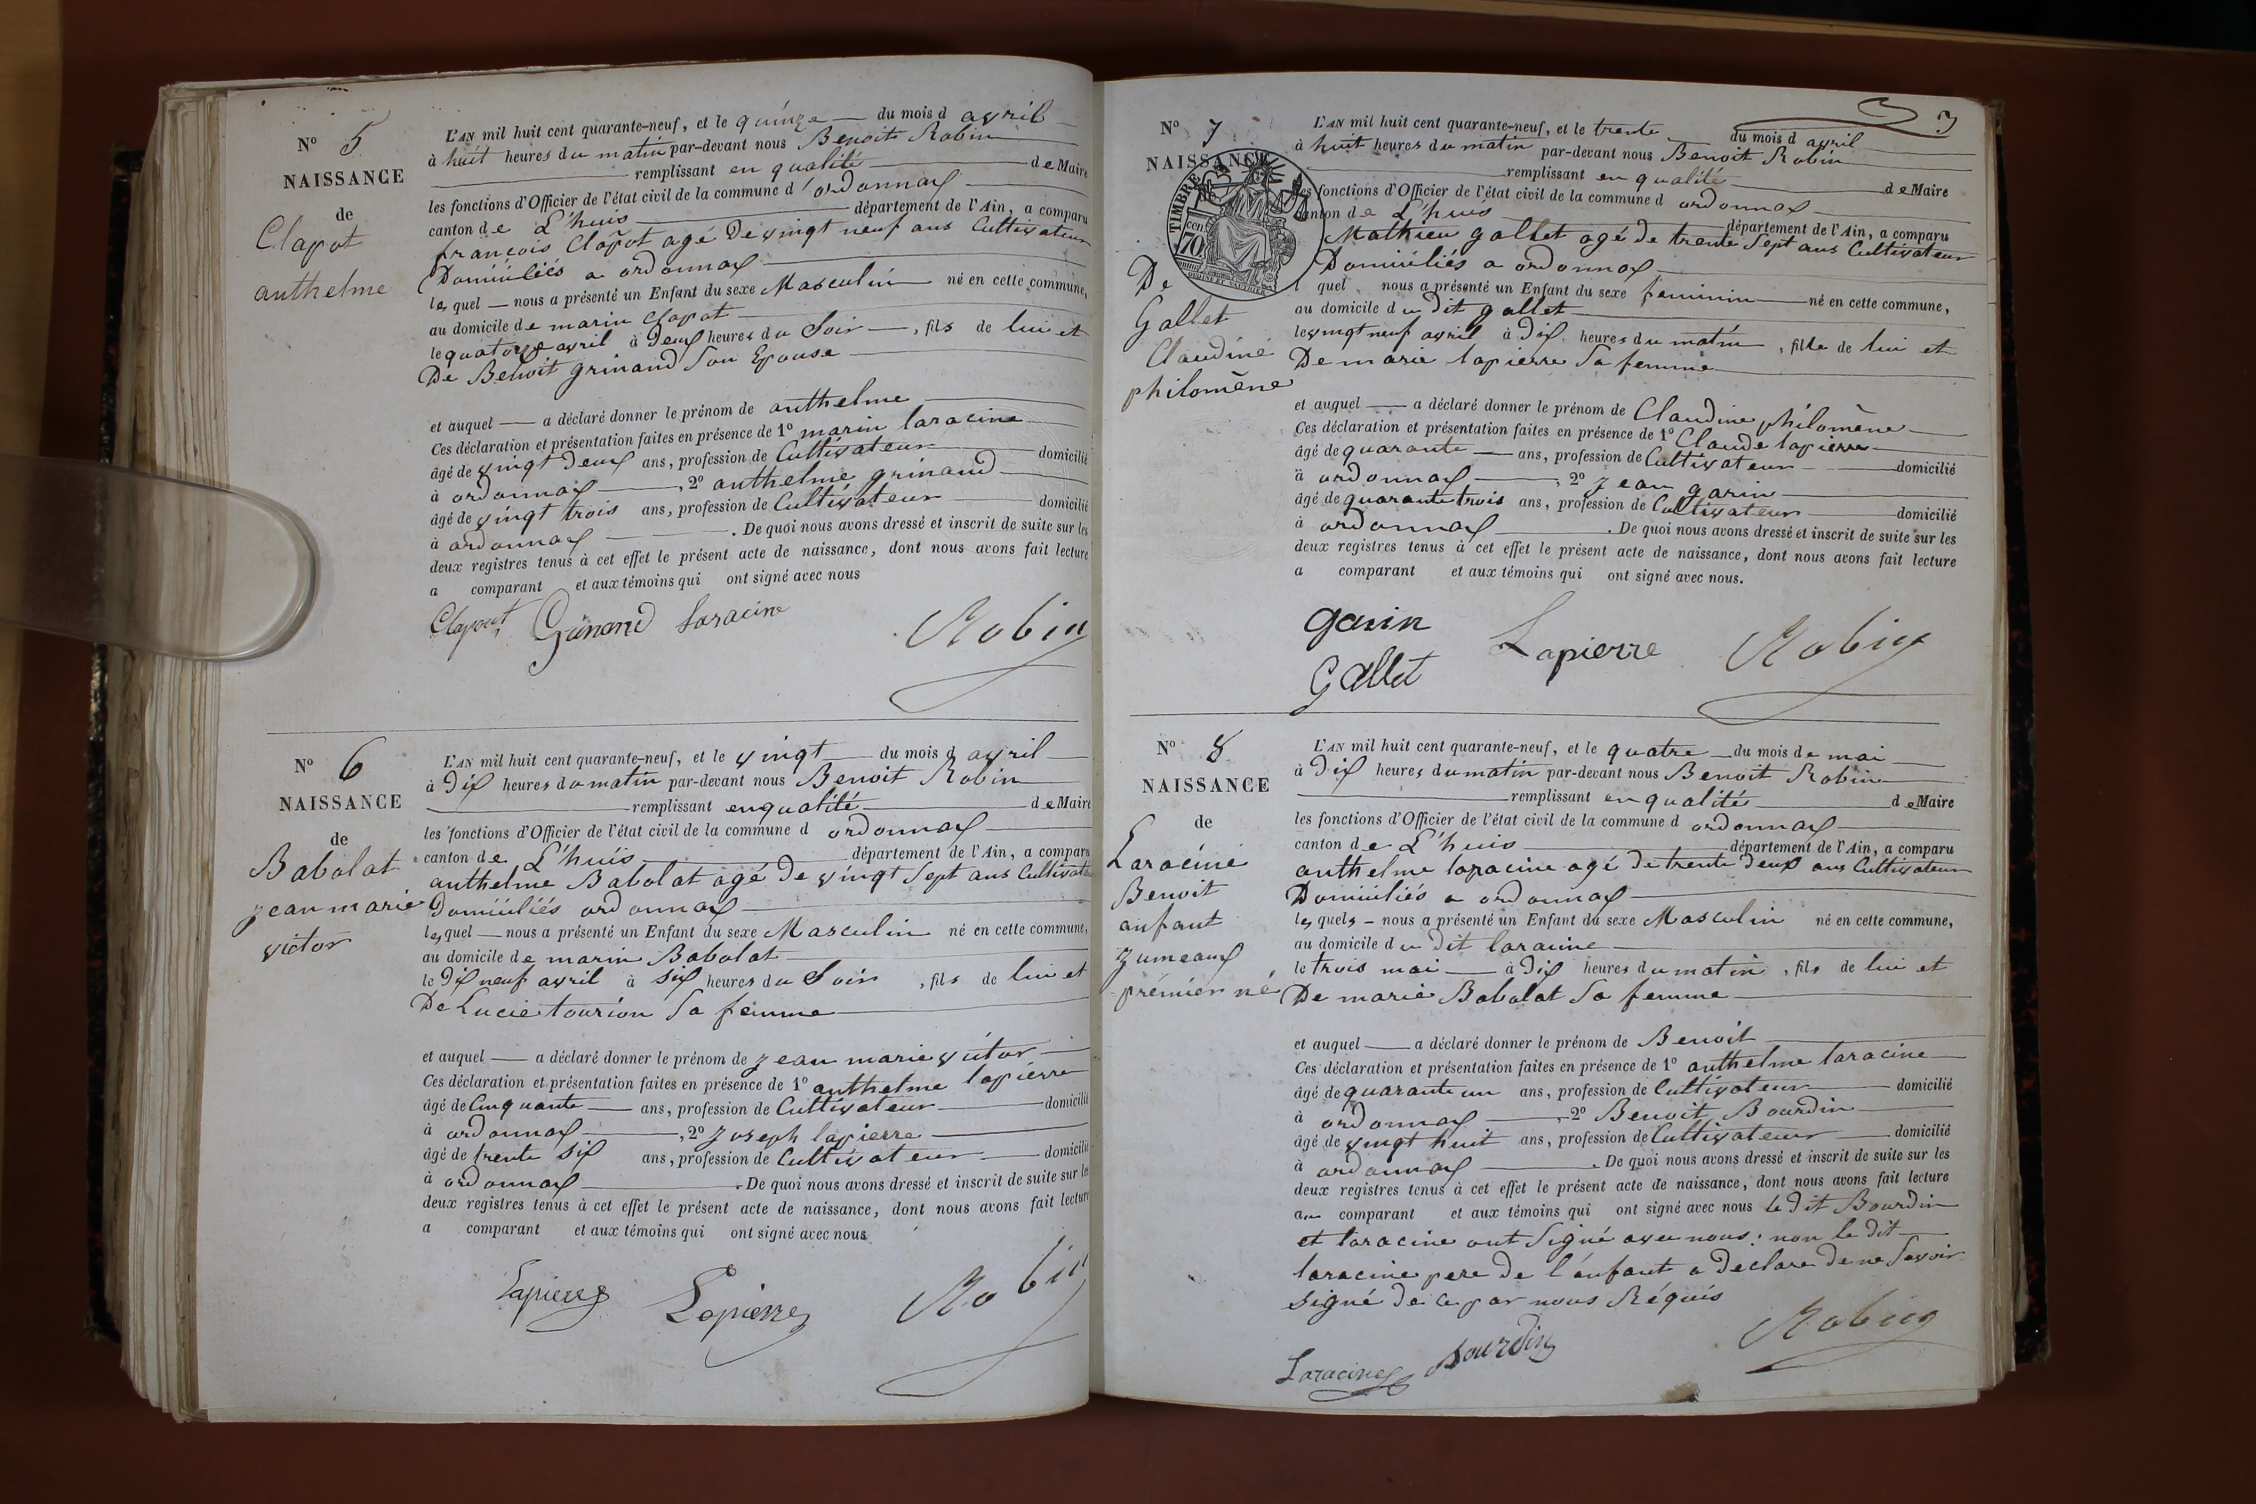 N° 5
NAISSANCE
de
Clapot
anthelme
L'AN mil huit cent quarante-neuf, et le quinze du mois d avril
à huit heures du matin par-devant nous Benoit Robin
remplissant en qualité de Maire
les fonctions d'Officier de l'état civil de la commune d'ordonnax
canton de L'huis département de l'Ain, a comparu
françois Clapot agé de vingt neuf ans Cultivateur
Domiciliés a ordonnax
lequel nous a présenté un Enfant du sexe Masculin né en cette commune,
au domicile de marin Clapot
le quatorze avril à deux heures du Soir, fils de lui et
De Benoit grinand Son Epouse
et auquel a déclaré donner le prénom de anthelme
Ces déclaration et présentation faites en présence de 1° marin laracine
âgé de vingt deux ans, profession de Cultivateur domicilié
à ordonnax, 2° anthelme grinand
âgé de vingt trois ans, profession de Cultivateur domicilié
à ordonnax. De quoi nous avons dressé et inscrit de suite sur les
deux registres tenus à cet effet le présent acte de naissance, dont nous avons fait lecture
a comparant et aux témoins qui ont signé avec nous
Clapot Grinand Laracine Robin
N° 6
NAISSANCE
de
Babolat
jean marie
victor
L'AN mil huit cent quarante-neuf, et le vingt du mois d avril
à Dix heures du matin par-devant nous Benoit Robin
remplissant en qualité de Maire
les fonctions d'Officier de l'état civil de la commune d ordonnax
canton de L'huis département de l'Ain, a comparu
anthelme Babolat agé de vingt Sept ans Cultivateur
Domiciliés ordonnax
lequel nous a présenté un Enfant du sexe Masculin né en cette commune,
au domicile de marin Babolat
le Dix neuf avril à Six heures du Soir, fils de lui et
De Lucie tourion Sa femme
et auquel a déclaré donner le prénom de jean marie victor
Ces déclaration et présentation faites en présence de 1° anthelme lapierre
âgé de Cinquante ans, profession de Cultivateur domicilié
à ordonnax, 2° joseph lapierre
âgé de trente Six ans, profession de Cultivateur domicilié
à ordonnax. De quoi nous avons dressé et inscrit de suite sur les
deux registres tenus à cet effet le présent acte de naissance, dont nous avons fait lecture
a comparant et aux témoins qui ont signé avec nous
Lapierre Lapierre Robin
3
N° 7
NAISSANCE
TIMBRE
70 cen
De
Gallet
Claudine
philomène
L'AN mil huit cent quarante-neuf, et le trente du mois d avril
à huit heures du matin par-devant nous Benoit Robin
remplissant en qualité de Maire
les fonctions d'Officier de l'état civil de la commune d ordonnax
canton de L'huis département de l'Ain, a comparu
Mathieu gallet agé de trente Sept ans Cultivateur
Domiciliés a ordonnax
l quel nous a présenté un Enfant du sexe feminin né en cette commune,
au domicile du dit gallet
le vingt neuf avril à Dix heures du matin, fille de lui et
De marie lapierre Sa femme
et auquel a déclaré donner le prénom de Claudine philomène
Ces déclaration et présentation faites en présence de 1° Claude lapierre
âgé de quarante ans, profession de Cultivateur domicilié
à ordonnax, 2° jean garin
âgé de quarante trois ans, profession de Cultivateur domicilié
à ordonnax. De quoi nous avons dressé et inscrit de suite sur les
deux registres tenus à cet effet le présent acte de naissance, dont nous avons fait lecture
a comparant et aux témoins qui ont signé avec nous.
garin Lapierre Robin
Gallet
N° 8
NAISSANCE
de
Laracine
Benoit
anfant
jumeaux
prémier né
L'AN mil huit cent quarante-neuf, et le quatre du mois de mai
à Dix heures du matin par-devant nous Benoit Robin
remplissant en qualité de Maire
les fonctions d'Officier de l'état civil de la commune d ordonnax
canton de L'huis département de l'Ain, a comparu
anthelme laracine agé de trente deux ans Cultivateur
Domiciliés a ordonnax
lesquels nous a présenté un Enfant du sexe Masculin né en cette commune,
au domicile du dit laracine
le trois mai à Dix heures du matin, fils de lui et
De marie Babolat Sa femme
et auquel a déclaré donner le prénom de Benoit
Ces déclaration et présentation faites en présence de 1° anthelme laracine
âgé de quarante un ans, profession de Cultivateur domicilié
à ordonnax, 2° Benoit Bourdin
âgé de vingt huit ans, profession de Cultivateur domicilié
à ordonnax. De quoi nous avons dressé et inscrit de suite sur les
deux registres tenus à cet effet le présent acte de naissance, dont nous avons fait lecture
au comparant et aux témoins qui ont signé avec nous le dit Bourdin
et laracine ont Signé avec nous: non le dit
laracine pere de l'enfant a declare de ne Savoir
signé de ce par nous Réquis
Laracine Bourdin Robin